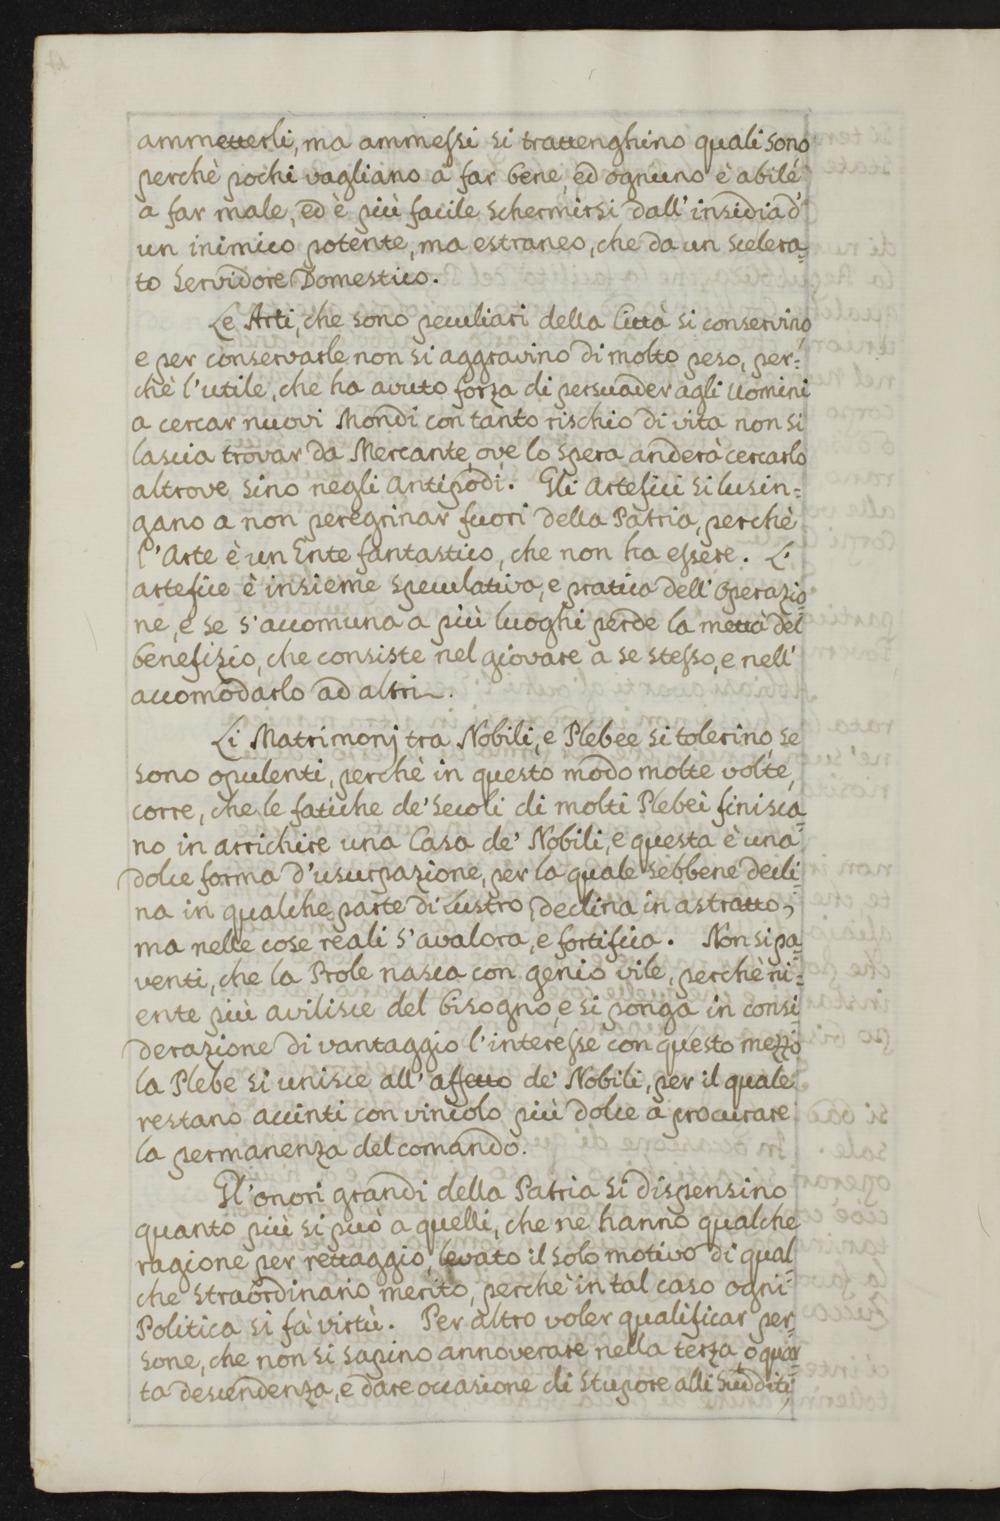 ammetterli, ma ammessi si trattenghino quali sono
perchè pochi vagliano à far bene, ed ognuno è abile
a far male, ed è più facile schermirsi dall'insidia d'
un inimico potente, ma estraneo, che da un scelera-
to Servidore Domestico.
Le Arti, che sono peculiari della Città si conservino,
e per conservarle non si aggravino di molto peso, per-
chè l'utile, che ha avuto forza di persuader agli Uomini
a cercar nuovi Mondi con tanto rischio di vita non si
lascia trovar da Mercante, ove lo spera anderà cercarlo
altrove sino negli Antipodi. Gli Artefici si lusin-
gano a non peregrinar fuori della Patria, perchè
l'Arte è un Ente fantastico, che non ha essere. L'
artefice è insieme speculativo, e pratico dell'Operazio-
ne, e se s'accomuna a più luoghi perde la mettà del
benefizio, che consiste nel giovare a se stesso, e nell'
accomodarlo ad altri.
Li Matrimonj tra Nobili, e Plebee si tolerino, se
sono opulenti, perchè in questo modo molte volte
corre, che le fatiche de' Secoli di molti Plebei finisca-
no in arrichire una Casa de' Nobili, e questa è una
dolce forma d'usurpazione, per la quale sebbene decli-
na in qualche parte di lustro, declina in astratto,
ma nelle cose reali s'avalora, e fortifica. Non si pa-
venti, che la Prole nasca con genio vile, perchè ni-
ente più avilisce del bisogno, e si ponga in consi-
derazione di vantaggio l'interesse con questo mezzo
la Plebe si unisce all'affetto de' Nobili, per il quale
restano accinti con vincolo più dolce à procurare
la permanenza del comando.
Gl'onori grandi della Patria si dispensino
quanto più si può a quelli, che ne hanno qualche
ragione per rettaggio, levato il solo motivo di qual-
che straordinario merito, perchè in tal caso ogni
Politica si fà virtù. Per altro voler qualificar per-
sone, che non si sapino annoverare nella terza, o quar-
ta descendenza, e dare occasione di stupore alli Sudditi,